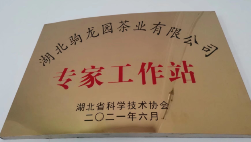 湖北驹龙园茶业有限公司
专家工作站
湖北省科学技术协会
二〇二一年六月